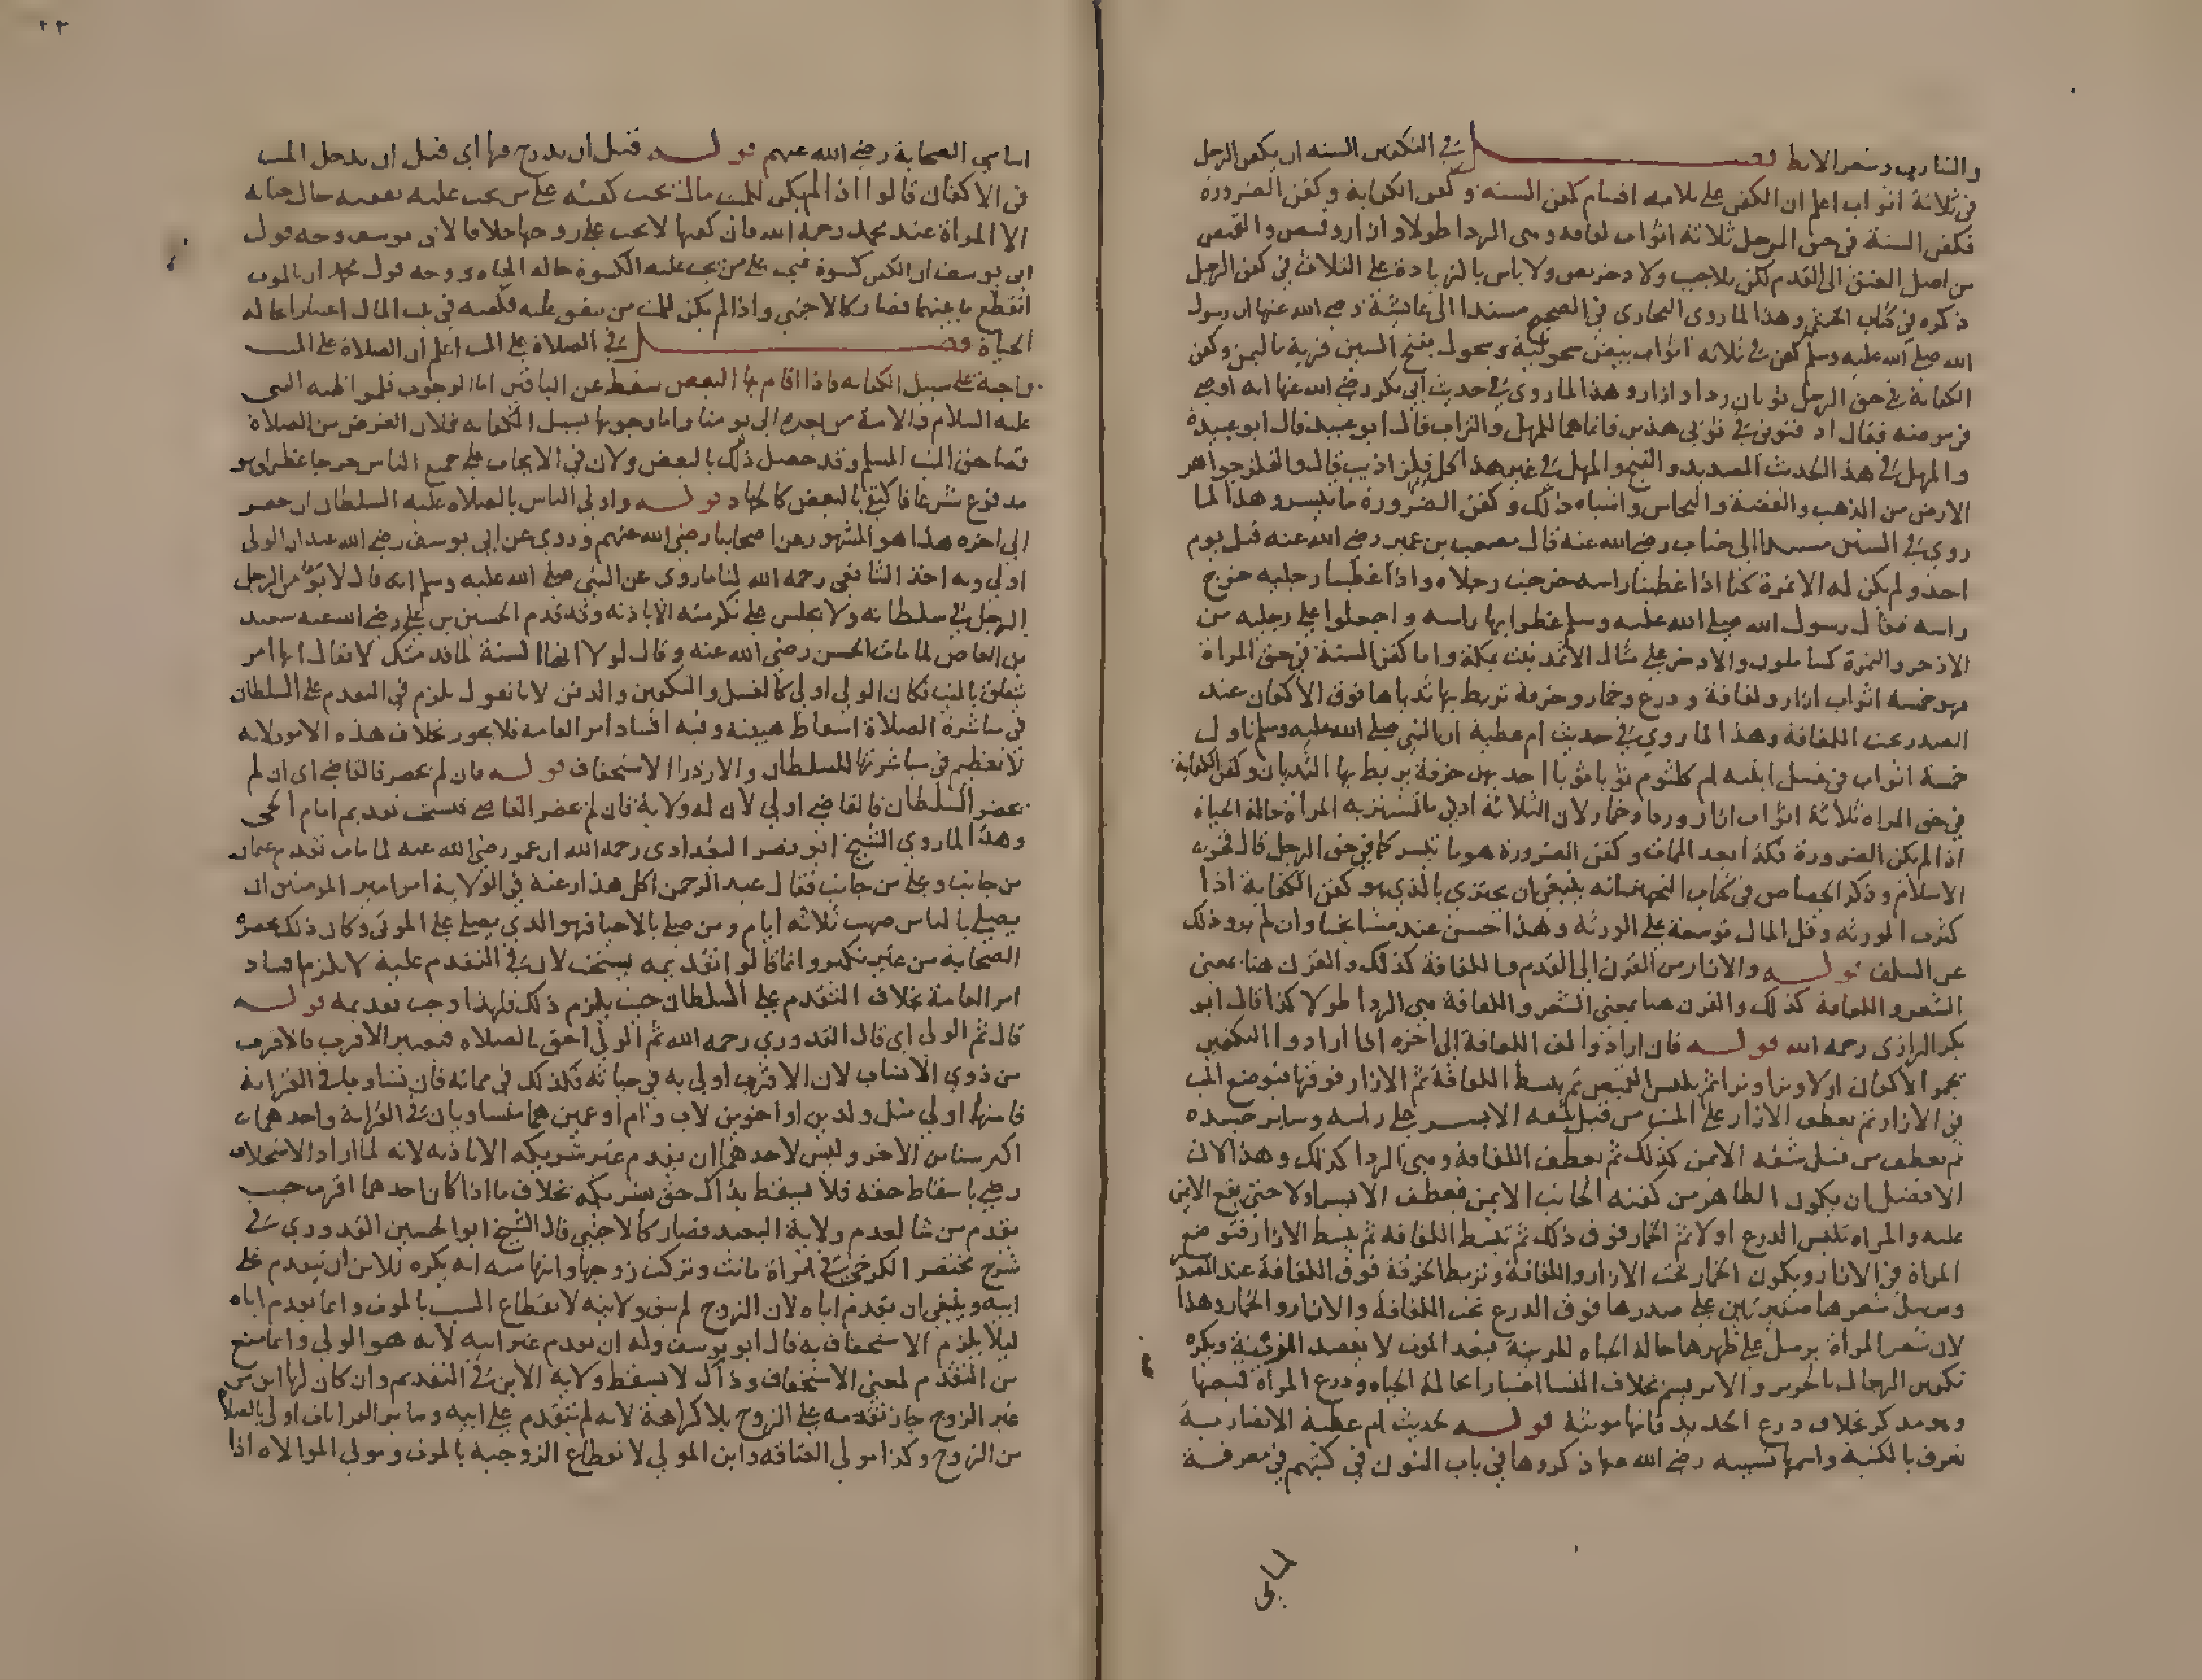 والشارب وشعر الابط فصل في التكفين السنة ان يكفن الرجل
في ثلاثة اثواب اعلم ان الكفن على ثلاثة اقسام كفن السنة وكفن الكفاية وكفن الضرورة
فكفن السنة في حق الرجل ثلاثة اثواب لفافة وهي الردا طولا وازار وقميص والقميص
من اصل العنق الى القدم لكن بلا جيب ولا دخريص ولا باس بالزيادة على الثلاث في كفن الرجل
ذكره في كتاب الخنثى وهذا لما روى البخاري في الصحيح مسندا الى عائشة رضي الله عنها ان رسول
الله صلى الله عليه وسلم كفن في ثلاثة اثواب بيض سحولية وسحول بفتح السين قرية باليمن وكفن
الكفاية في حق الرجل ثوبان ردا وازار وهذا لما روي في حديث ابي بكر رضي الله عنها انه اوصى
في مرضه فقال ادفنوني في ثوبي هذين فانهما للمهل والتراب قال ابو عبيد قال ابو عبيدة
والمهل في هذا الحديث الصديد والقيح والمهل في غير هذا كل فلز اذيب قال والفلز جواهر
الارض من الذهب والفضة والنحاس واشباه ذلك وكفن الضرورة ما تيسر وهذا لما
روي في السنن مسندا الى خباب رضي الله عنه قال مصعب بن عمير رضي الله عنه قتل يوم
احد ولم يكن له الا نمرة كنا اذا غطينا راسه خرجت رجلاه واذا غطينا رجليه خرج
راسه فقال رسول الله صلى الله عليه وسلم غطوا بها راسه واجعلوا على رجليه من
الاذخر والنمرة كسا ملون والاذخر على مثال الاثمد نبت بمكة واما كفن السنة في حق المراة
فهو خمسة اثواب ازار ولفافة ودرع وخمار وخرقة تربط بها ثدياها فوق الاكفان عند
الصدر تحت اللفافة وهذا لما روي في حديث ام عطية ان النبي صلى الله عليه وسلم ناول
خمسة اثواب في غسل ابنته ام كلثوم ثوبا ثوبا احديهن خرقة يربط بها الثديان وكفن الكفاية
في حق المراه ثلاثة اثواب ازار وردا وخمار لان الثلاثة ادنى ما تستتر به المراة حالة الحياة
اذا لم يكن الضرورة فكذا بعد الممات وكفن الضرورة هو ما تيسر كما في حق الرجل قال فخر
الاسلام وذكر الجصاص في كتاب انه ينبغي ان يجتزي بالذي هو كفن الكفاية اذا
كثرت الورثة وقل المال توسعة على الورثة وهذا حسن عند مشايخنا وان لم يرو ذلك
عن السلف قوله والازار من القرن الى القدم واللفافة كذلك والقرن هنا بمعنى
الشعر واللفافة كذلك والقرن هنا بمعنى الشعر واللفافة هي الردا طولا كذا قال ابو
بكر الرازي رحمه الله قوله فان ارادوا لف اللفافة الى اخره اذا ارادوا التكفين
تجمر الاكفان اولا وترا وترا ثم يلبس القميص ثم يبسط اللفافة ثم الازار فوقها فتوضع الميت
في الازار ثم يعطف الازار على الميت من قبل شقه الايسر على راسه وساير جسده
ثم يعطف من قبل شقه الايمن كذلك ثم يعطف اللفافة وهي الردا كذلك وهذا لان
الافضل ان يكون الظاهر من كفنه الجانب الايمن فيعطف الايسر اولا حتى يقع الايمن
عليه والمراه تلبس الدرع اولا ثم الخمار فوق ذلك ثم تبسط اللفافة ثم يبسط الازار فتوضع
المراة في الازار ويكون الخمار تحت الازار واللفافة وتربط الخرقة فوق اللفافة عند الصدر
ويرسل شعرها ضفيرتين على صدرها فوق الدرع تحت اللفافة والازار والخمار وهذا
لان شعر المراة يرسل على ظهرها حالة الحياه للزينة وبعد الموت لا يقصد الزينة ويكره
تكفين الرجال بالحرير والابريسم بخلاف النسا اعتبارا بحالة الحياه ودرع المراة قميصها
وهو مذكر بخلاف درع الحديد فانها مونثة قوله لحديث ام عطية الانصارية
تعرف بالكنية واسمها نسيبه رضي الله عنها ذكروها في باب النون في كتبهم في معرفة
اسامي
اسامي الصحابة رضي الله عنهم قوله قبل ان يدرج فيها اي قبل ان يدخل الميت
في الاكفان قالوا اذا لم يكن للميت مال تجب كفنه على من تجب عليه نفقته حال حياته
الا المراة عند محمد رحمه الله فان كفنها لا يجب على زوجها خلافا لابي يوسف وجه قول
ابي يوسف ان الكفن كسوة فتجب على من تجب عليه الكسوة حالة الحياه ووجه قول محمد ان بالموت
انقطع ما بينهما فصار كالاجنبي واذا لم يكن للميت من ينفق عليه فكفنه في بيت المال اعتبارا بحالة
الحياة فصل في الصلاة على الميت اعلم ان الصلاة على الميت
واجبة على سبيل الكفاية فاذا اقام بها البعض سقط عن الباقين اما الوجوب فلمواظبة النبي
عليه السلام والامة من بعده الى يومنا واما وجوبها بسبيل الكفاية فلان الغرض من الصلاة
قضا حق الميت المسلم وقد حصل ذلك بالبعض ولان في الايجاب على جميع الناس حرجا عظيما وهو
مدفوع شرعا فاكتفي بالبعض كالجهاد قوله واولى الناس بالصلاة عليه السلطان ان حضر
الى اخره هذا هو المشهور من اصحابنا رضي الله عنهم وروي عن ابي يوسف رضي الله عنه ان الولي
اولى وبه اخذ الشافعي رحمه الله لنا ما روي عن النبي صلى الله عليه وسلم انه قال لا يؤمن الرجل
الرجل في سلطانه ولا يجلس على تكرمته الا باذنه وقد قدم الحسين بن علي رضي الله عنه سعيد
بن العاص لما مات الحسن رضي الله عنه وقال لولا انها السنة لما قدمتك لا يقال انها امر
يتعلق بالميت فكان الولي اولى كالغسل والتكفين والدفن لانا نقول يلزم في التقدم على السلطان
في مباشرة الصلاة اسقاط هيبته وفيه افساد امر العامة فلا يجوز بخلاف هذه الامور لانه
لا تعظيم في مباشرتها للسلطان والازدرا الاستخفاف قوله فان لم يحضر فالقاضي اي ان لم
يحضر السلطان فالقاضي اولى لان له ولاية فان لم يحضر القاضي فيستحب تقديم امام الحي
وهذا لما روي الشيخ ابو نصر البغدادي رحمه الله ان عمر رضي الله عنه لما مات تقدم عثمان
من جانب وعلي من جانب فقال عبد الرحمن اكل هذا رغبة في الولاية امر امير المومنين ان
يصلي بالناس صهيب ثلاثة ايام ومن صلى بالاحيا فهو الذي يصلي على الموتى وكان ذلك بمحضر
الصحابة من غير نكير وانما قالوا تقديمه يستحب لان في التقدم عليه لا يلزم فساد
امر العامة بخلاف التقدم على السلطان حيث يلزم ذلك فلهذا وجب تقديمه قوله
قال ثم الولي اي قال القدوري رحمه الله ثم الولي احق بالصلاه فيعتبر الاقرب فالاقرب
من ذوي الانساب لان الاقرب اولى به في حياته فكذلك في مماته فان تساويا في القرابة
فاسنهما اولى مثل ولدين او اخوين لاب وام او عمين هما متساويان في القرابة واحدهما
اكبر سنا من الاخر وليس لاحدهما ان يقدم غير شريكه الا باذنه لانه لما اراد الاستخلاف
رضي باسقاط حقه فلا يسقط بذاك حق شريكه بخلاف ما اذا كان احدهما اقرب حيث
يقدم من شا لعدم ولاية البعيد فصار كالاجنبي قال الشيخ ابو الحسين القدوري في
شرح مختصر الكرخي في امراة ماتت وتركت زوجها وابنها منه انه يكره للابن ان يتقدم على
ابيه وينبغي ان يقدم اباه لان الزوج لم يبق ولايته لانقطاع السبب بالموت وانما يقدم اباه
ليلا يلزم الاستخفاف به قال ابو يوسف وله ان يقدم غير ابيه لانه هو الولي وانما منع
من التقدم لمعنى الاستخفاف وذاك لا يسقط ولاية الابن في التقديم وان كان لها ابن من
غير الزوج جاز تقدمه على الزوج بلا كراهة لانه لم يتقدم على ابيه وساير القرابات اولى بالصلاة
من الزوج وكذا مولى العتاقة وابن المولى لانقطاع الزوجية بالموت ومولى الموالاه اذا